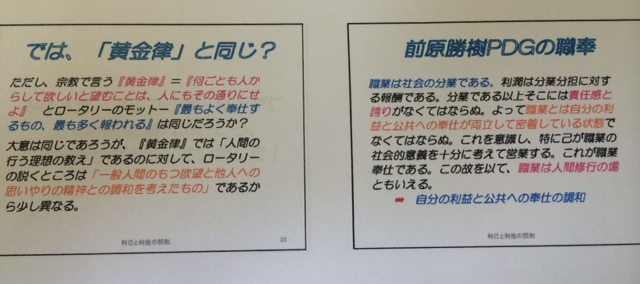 では、「黄金律」と同じ？
ただし、宗教で言う『黄金律』＝『何ごとも人か
らして欲しいと望むことは、人にもその通りにせ
よ』　とロータリーのモットー『最もよく奉仕す
るもの、最も多く報われる』は同じだろうか？
大意は同じであろうが、『黄金律』では「人間の
行う理想の教え」であるのに対して、ロータリー
の説くところは「一般人間のもつ欲望と他人への
思いやりの精神との調和を考えたもの」であるか
ら少し異なる。
利己と利他の調和
23
前原勝樹PDGの職奉
職業は社会の分業である。利潤は分業分担に対す
る報酬である。分業である以上そこには責任感と
誇りがなくてはならぬ。よって職業とは自分の利
益と公共への奉仕が両立して密着している状態で
なくてはならぬ。これを意識し、特に己が職業の
社会的意義を十分に考えて営業する。これが職業
奉仕である。この故を以て、職業は人間修行の場
ともいえる。
➡ 自分の利益と公共への奉仕の調和
利己と利他の調和